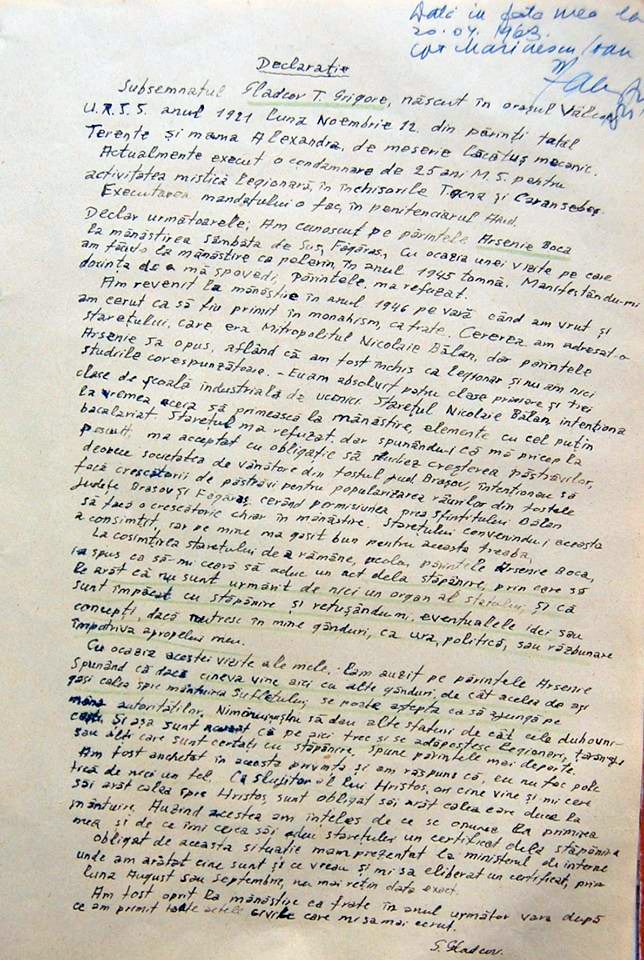 Dată în fața mea la
20.04.1963.
Cpt Marinescu Ioan
Declarație
Subsemnatul Gladcov T. Grigore, născut în orașul Vâlcov
U.R.S.S. anul 1921 luna Noembrie 12. din părinți tatăl
Terente și mama Alexandra, de meserie lăcătuș mecanic.
Actualmente execut o condamnare de 25 ani M.S. pentru
activitatea mistică legionară, în închisorile Tg Ocna și Caransebeș.
Executarea mandatului o fac, în penitenciarul Aiud.
Declar următoarele; Am cunoscut pe părintele Arsenie Boca
la mânăstirea sâmbăta de Sus, Făgăraș, Cu ocazia unei vizite pe care
am făcut-o la mânăstire ca pelerin, în anul 1945 toamnă. Manifestându-mi
dorința de a mă spovedi, Părintele, ma refuzat.
Am revenit la mânăstire în anul 1946 pe vară când am vrut și
am cerut ca să fiu primit în monahism, ca frate. Cererea am adresat-o
starețului, care era Mitropolitul Nicolaie Bălan, dar părintele
Arsenie sa opus, aflând că am fost închis ca legionar și nu am nici
studiile corespunzătoare. - Eu am absolvit patru clase primare și trei
clase de școală industrială de ucenici. Starețul Nicolaie Bălan, intenționa
la vremea aceia să primească la mânăstire, elemente cu cel puțin
bacalariat. Starețul ma refuzat, dar spunându-i că mă pricep la
pescuit, ma acceptat cu obligație să studiez creșterea păstrăvilor,
deoarece societatea de vânătore din fostul jud. Brașov, intenționau să
facă crescătorii de păstrăvi pentru popularizarea râurilor din fostele
județe Brașov și Făgăraș, cerând permisiunea prea sfințitului Bălan
să facă o crescătorie chiar în mânăstire. Starețului convenindu-i aceasta
a consimțit, iar pe mine ma găsit bun pentru aceasta treabă,
La cosimțirea starețului de a rămâne, acolo, părintele Arsenie Boca,
ia spus ca să-mi ceară să aduc un act dela stăpânire, prin care să
le arăt că nu sunt urmărit de nici un organ al statului, și că
sunt împăcat cu stăpânire și refuzându-mi, eventualele idei sau
concepți, dacă nutresc în mine gânduri, ca ura, politică, sau răzbunare
împotriva aproapelui meu.
Cu ocazia acestei vizite ale mele. - Lam auzit pe părintele Arsenie
spunând că dacă cineva vine aici cu alte gânduri, de cât acelea de a-și
găsi calea spre mântuirea sufletului, se poate aștepta ca să ajungă pe
mâna autorităților, Nimănui nu știu să dau alte sfaturi de cât cele duhovni-
cești. Și așa sunt acuzat că pe aici trec și se adăpostesc legionari, țărani
sau alți care sunt certați cu stăpânire, spune părintele mai departe.
Am fost anchetat în aceasta privință și am răspuns că, eu nu fac poli-
tică de nici un fel. Ca slujitor al lui Hristos, ori cine vine și mi cere
săi arăt calea spre Hristos, sunt obligat săi arăt calea care duce la
mântuire. Auzind acestea am înțeles de ce se opunea la primirea
mea și de ce îmi cerea săi aduc starețului un certificat dela stăpânire
Obligat de aceasta situație mam prezentat la ministerul de interne
unde am arătat cine sunt și ce vreau și mi sa eliberat un certificat, prin
luna August sau septembrie, nu mai rețin data exact.
Am fost oprit la mânăstire ca frate în anul următor vara după
ce am primit toate actele civile care mi sa mai cerut.
G. Gladcov.